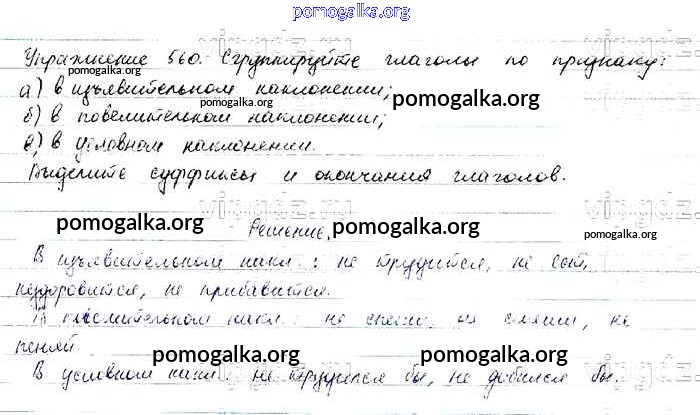 pomogalka.org
Упражнение 560. Сгруппируйте глаголы по признаку:
pomogalka.org
а) в изъявительном наклонении;
pomogalka.org
б) в повелительном наклонении;
pomogalka.org
в) в условном наклонении.
Выделите суффиксы и окончания глаголов.
vipgdz.com
pomogalka.org
Решение.
pomogalka.org
pomogalka.org
В изъявительном накл.: не трудится, не
нездоровится, не прибавится.
В накл.: не спеши, не смеши, не
пеняй.
pomogalka.org
pomogalka.org
В условном накл.: не трудился бы, не добился бы.